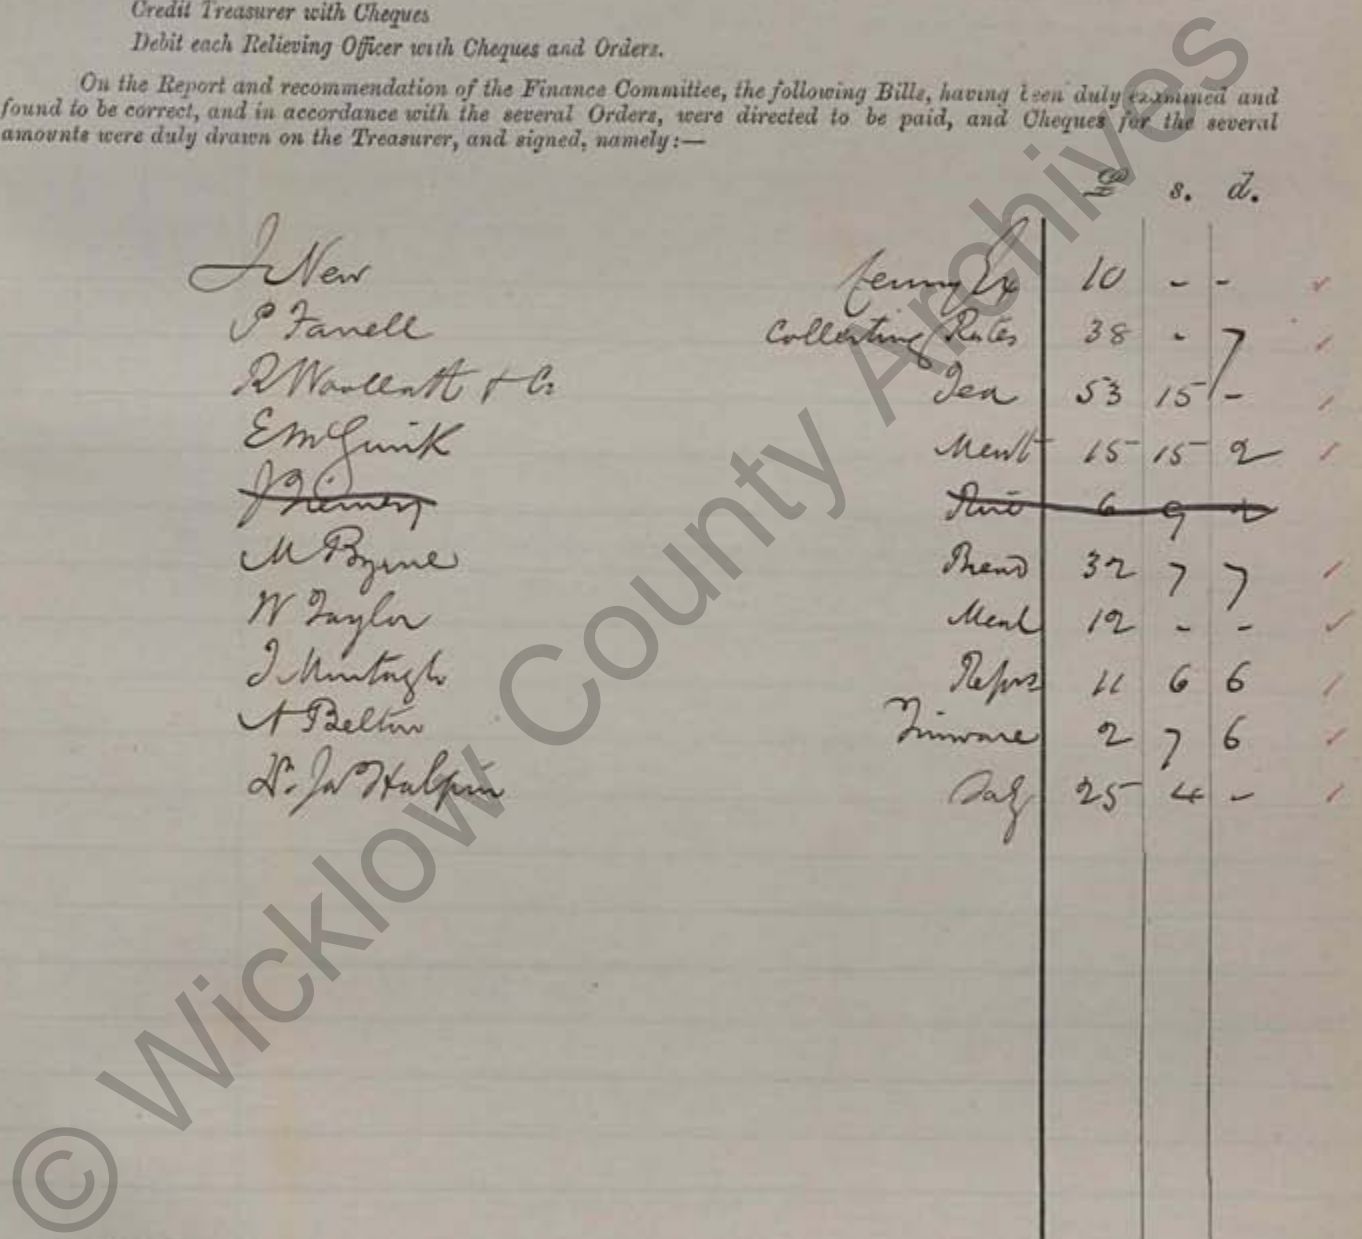 Credit Treasurer with Cheques
Debit each Relieving Officer with Cheques and Orders.
On the Report and recommendation of the Finance Committee, the following Bills, having been duly examined and
found to be correct, and in accordance with the several Orders, were directed to be paid, and Cheques for the several
amounts were duly drawn on the Treasurer, and signed, namely:—
£ s. d.
J New 10 - -
P Farrell Collecting Rates 38 - 7
R Woollatt & Co Tea 53 15 -
E McGuirk 15 15 2
6 9
M Byrne Bread 32 7 7
W Taylor Meal 12 - -
J Murtagh Reprs 11 6 6
A Belton Tinware 2 7 6
Dr. Jas Halpin Saly 25 4 -
© Wicklow County Archives